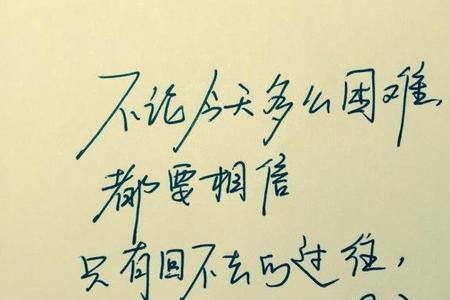 不论今天多么困难，
都要相信
只有回不去的过往，